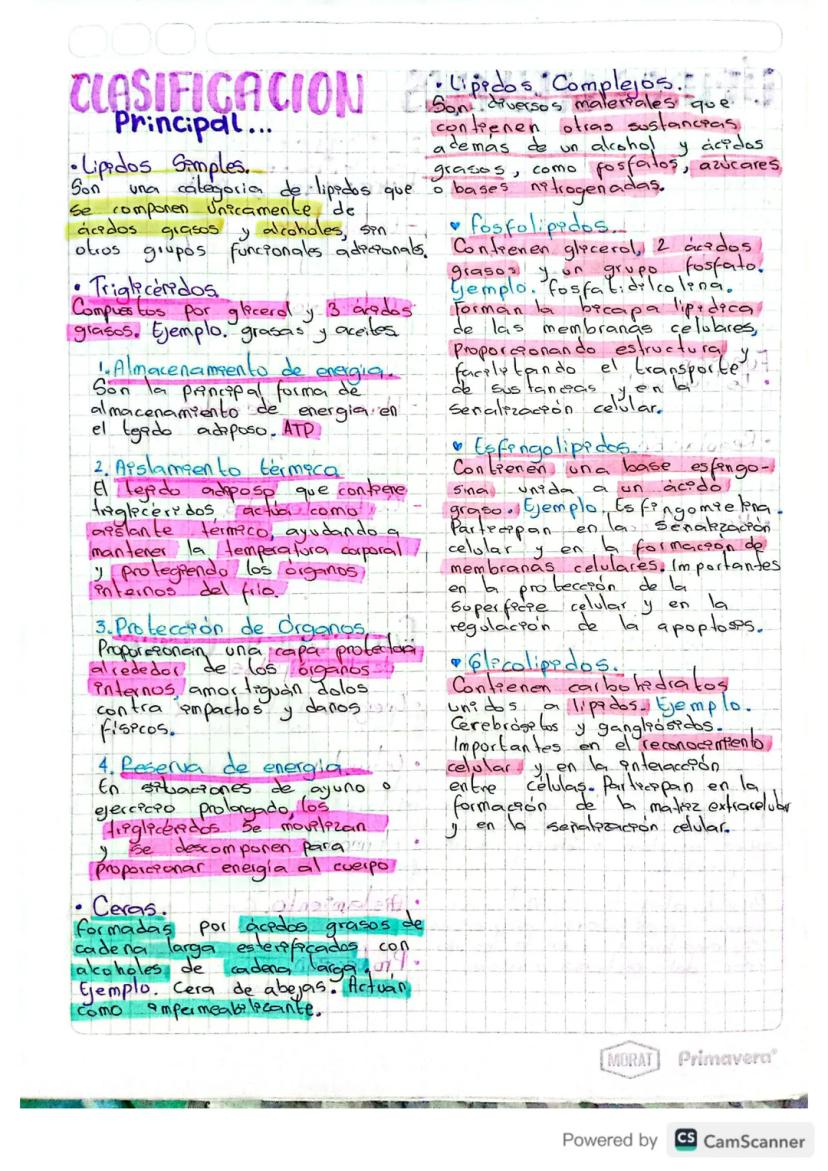 CLASIFICACION
Principal...
• Lipidos Simples.
Son una categoria de lipidos que
se componen unicamente de
ácidos grasos y alcoholes, sin
otros grupos funcionales adicionales.
• Triglicéridos
Compuestos por glicerol y 3 ácidos
grasos. Ejemplo. grasas y aceites
1. Almacenamiento de energia.
Son la principal forma de
almacenamiento de energia en
el tejido adiposo. ATP
2. Aislamiento térmico
El tejido adiposo que contiene
triglicéridos actúa como
aislante térmico, ayudando a
mantener la temperatura corporal
y protegiendo los órganos
internos del frio.
3. Protección de Órganos
Proporcionan una capa protectora
alrededor de los órganos
internos, amortiguan dolos
contra impactos y daños
físicos.
4. Reserva de energia
En situaciones de ayuno o
ejercicio prolongado, los
triglicéridos se movilizan
y se descomponen para
proporcionar energía al cuerpo
• Ceras.
formadas por ácidos grasos de
cadena larga esterificados con
alcoholes de cadena larga.
Ejemplo. Cera de abejas. Actúan
como impermeabilizante.
• Lipidos Complejos.
Son diversos materiales que
contienen otras sustancias
además de un alcohol y ácidos
grasos, como fosfatos, azúcares
o bases nitrogenadas.
♥ fosfolipidos.
Contienen glicerol, 2 ácidos
grasos y un grupo fosfato.
Ejemplo. fosfatidilcolina.
Forman la bicapa lipidica
de las membranas celulares,
proporcionando estructura y
facilitando el transporte
de sustancias y en la
señalización celular.
♥ Esfingolipidos.
Contienen una base esfingo-
sina unida a un ácido
graso. Ejemplo. Esfingomielina.
Participan en la señalización
celular y en la formación de
membranas celulares. Importantes
en la protección de la
superficie celular y en la
regulación de la apoptosis.
♥ Glicolipidos.
Contienen carbohidratos
unidos a lipidos. Ejemplo.
Cerebrósidos y gangliósidos.
Importantes en el reconocimiento
celular y en la interacción
entre células. Participan en la
formación de la matriz extracelular
y en la señalización celular.
MORAT Primavera®
Powered by CS CamScanner